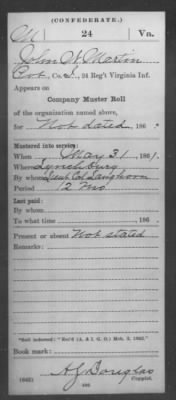 (CONFEDERATE.)
M 24 Va.
John W. Martin
Co. 24 Reg't Virginia Inf.
Appears on
Company Muster Roll
of the organization named above,
for Not dated, 186 .
Mustered into service:
When May 31, 1861.
Where Lynchburg
By whom Lieut Col Langhorn
Period 12 Mo
Last paid:
By whom
To what time , 186 .
Present or absent Not stated
Remarks:
Book mark:
A J Douglas
(642) Copyist.